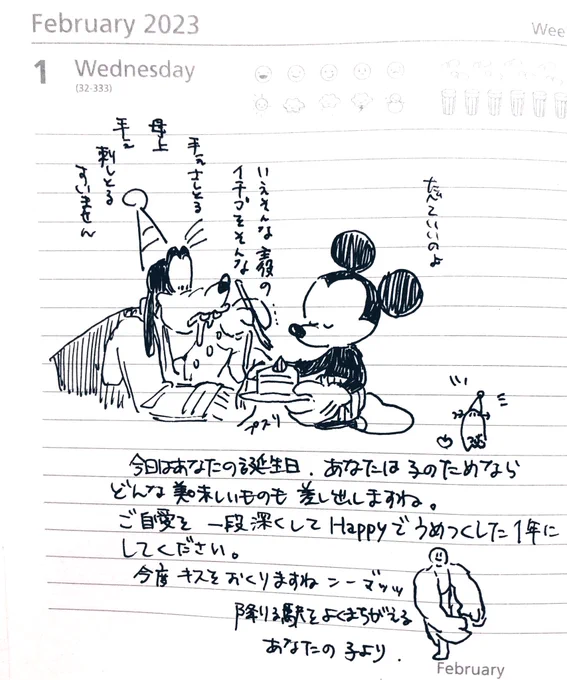 February 2023
Wee
1 Wednesday
(32-333)
母上
手元
刺しとる
すいません
手元さしとる
いえそんな主役の…
イチゴをそんな
たべていいのよ
プスリ
今日はあなたの誕生日。あなたは子のためなら
どんな美味しいものも差し出しますね。
ご自愛を一段深くしてHappyでうめつくした1年に
してください。
今度キスをおくりますね ンーマッッ
降りる駅をよくまちがえる
あなたの子より.
February